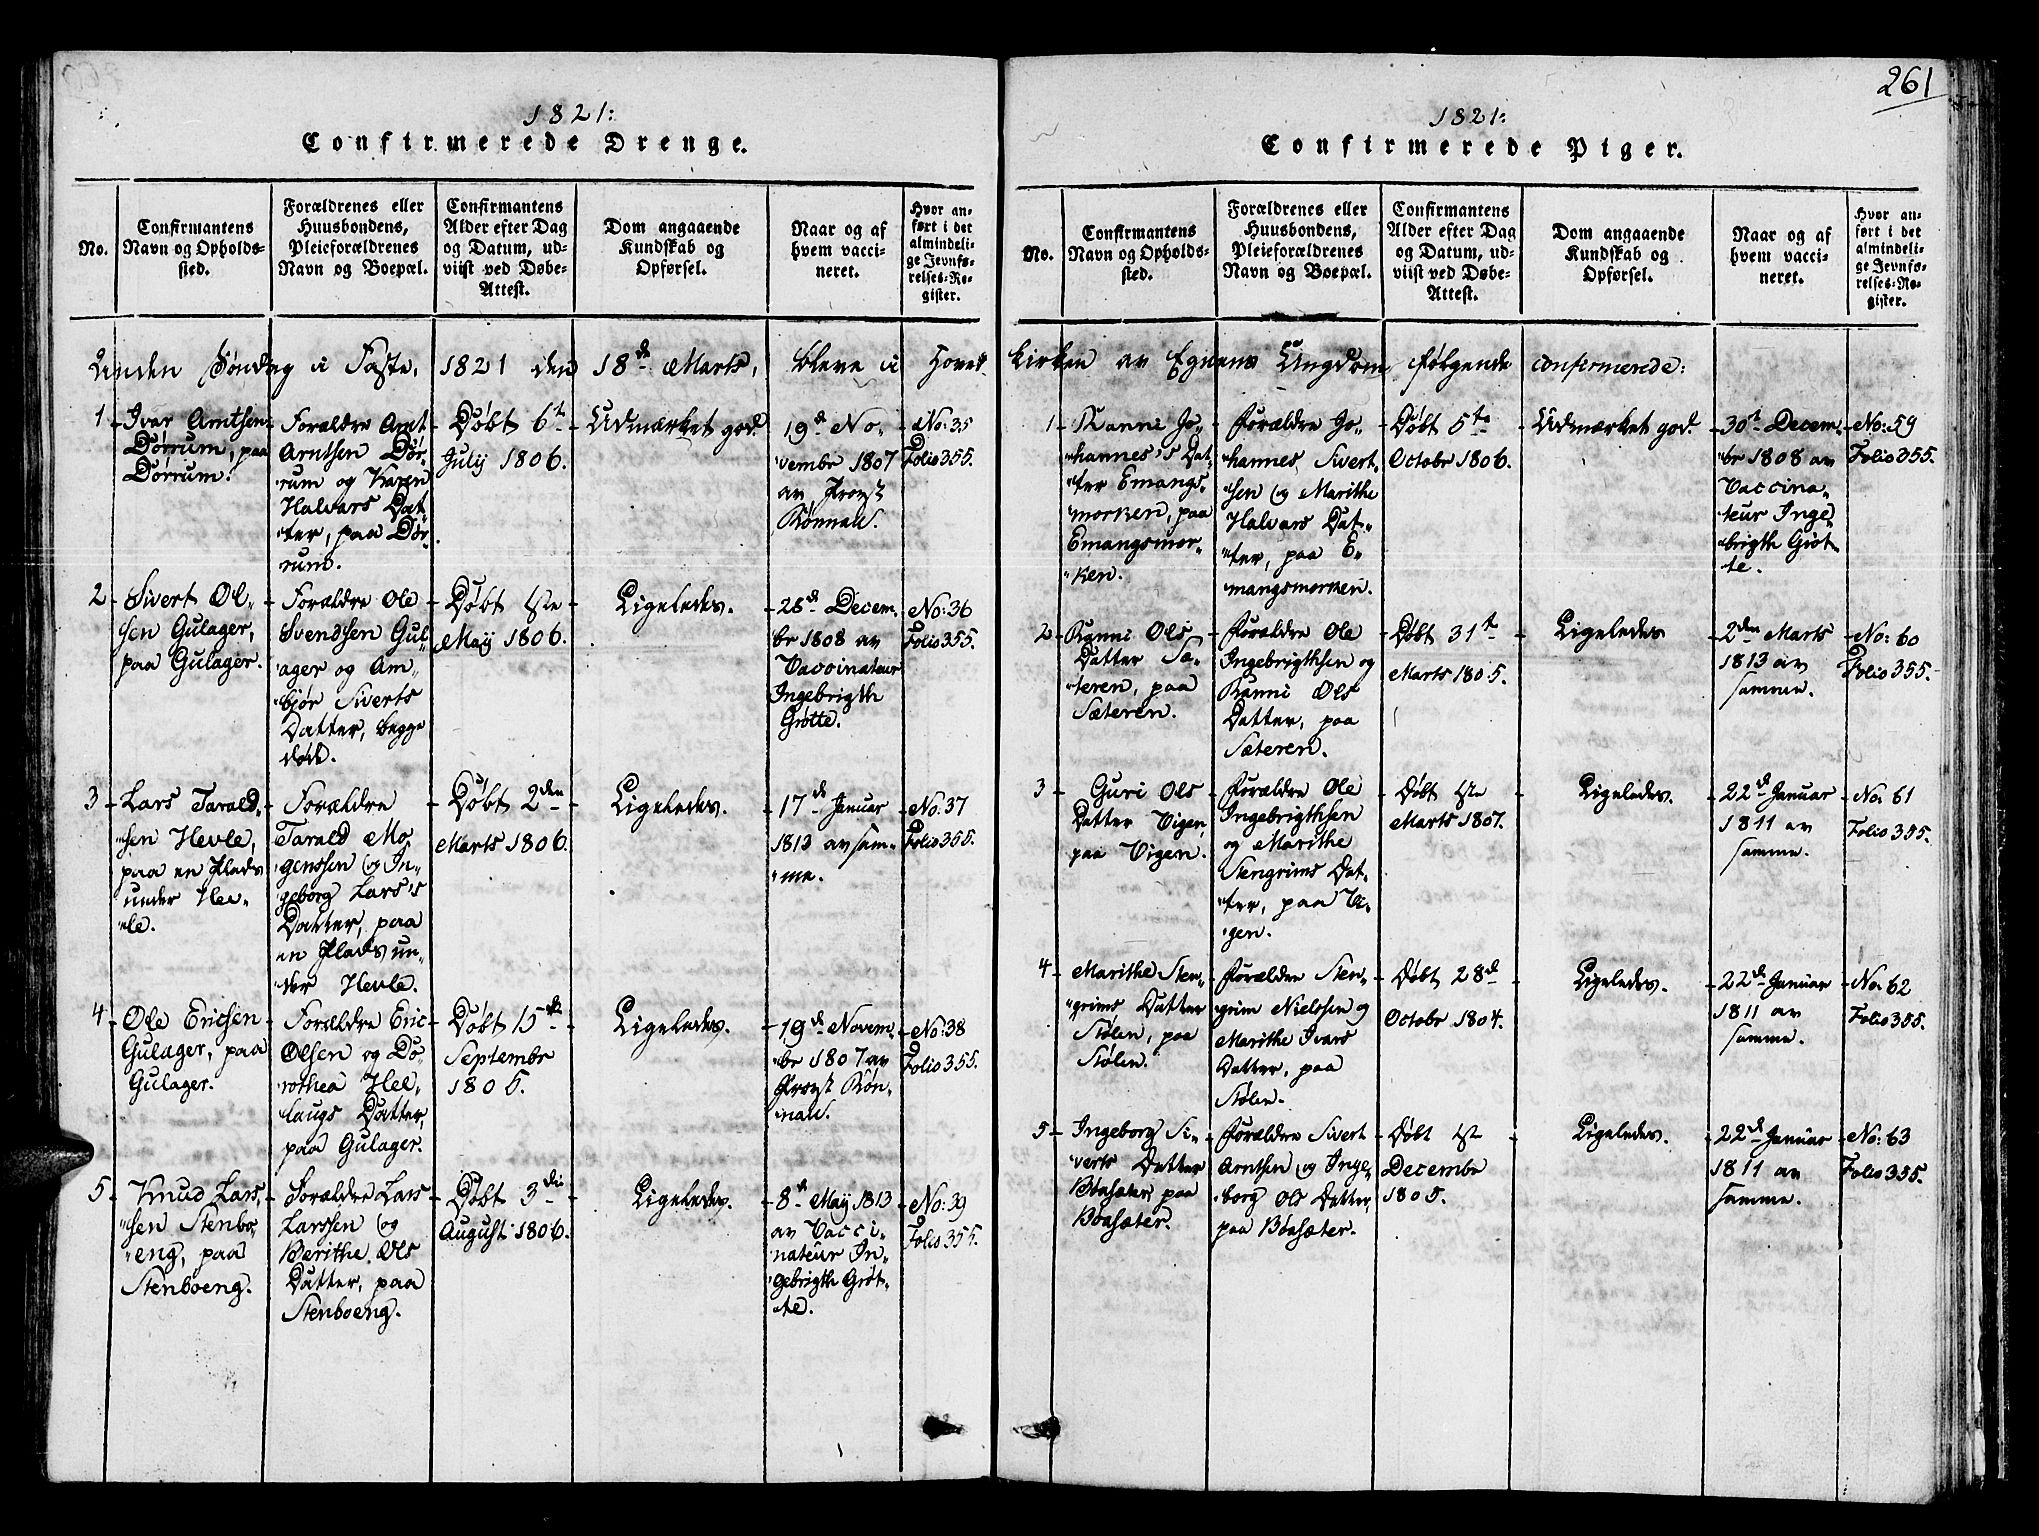 261
1821:
Confirmerede Drenge.
No.
Confirmantens
Navn og Opholds-
sted.
Forældrenes eller
Huusbondens,
Pleieforældrenes
Navn og Boepæl.
Confirmantens
Alder efter Dag
og Datum, ud-
viist ved Døbe-
Attest.
Dom angaaende
Kundskab og
Opførsel.
Naar og af
hvem vacci-
neret.
Hvor an-
ført i det
almindeli-
ge Jevnfø-
relses-Re-
gister.
Anden Søndag i Faste, 1821 den 18de Marts, bleve i Hoved-
1
Ivar Arntsen
Dørrum, paa
Dørrum.
Forældre Arnt
Arntsen Dør-
rum og Karen
Halvars Dat-
ter, paa Dør-
rum.
Døbt 6te
July 1806.
Udmærket god.
19de No-
vembr 1807
av Provst
Rønnau.
No: 35
Folio 355.
2
Sivert Ol-
sen Gulager,
paa Gulager.
Forældre Ole
Svendsen Gul-
ager og Am-
bjør Siverts
Datter, begge
døde.
Døbt 1ste
Maij 1806.
Ligeledes.
28de Decem-
br 1808 av
Vaccinateur
Ingebrigth
Grøtte.
No: 36
Folio 355.
3
Lars Tarald-
sen Hevle,
paa en Plads
under Hev-
le.
Forældre
Tarald Mo-
genssen og In-
geborg Lars's
Datter, paa
en Plads un-
der Hevle.
Døbt 2den
Marts 1806.
Ligeledes.
17de Januar
1813 av sam-
me.
No. 37
Folio 355.
4
Ole Ericsen
Gulager, paa
Gulager.
Forældre Eric
Olsen og Do-
rothea Hel-
laugs Datter,
paa Gulager.
Døbt 15de
Septembr
1805.
Ligeledes.
19de Novem-
br 1807 av
Provst Røn-
nau.
No: 38
Folio 355.
5
Knud Lars-
sen Stenbo-
eng, paa
Stenboeng.
Forældre Lars
Larssen og
Berithe Ols
Datter, paa
Stenboeng.
Døbt 3die
August 1806.
Ligeledes.
8de Maij 1813
av Vacci-
nateur In-
gebrigth Grøt-
te.
No: 39
Folio 355.
1821:
Confirmerede Piger.
No.
Confirmantens
Navn og Opholds-
sted.
Forældrenes eller
Huusbondens,
Pleieforældrenes
Navn og Boepæl.
Confirmantens
Alder efter Dag
og Datum, ud-
viist ved Døbe-
Attest.
Dom angaaende
Kundskab og
Opførsel.
Naar og af
hvem vacci-
neret.
Hvor an-
ført i det
almindeli-
ge Jevnfø-
relses-Re-
gister.
kirken av Egnens Ungdom følgende confirmerede:
1
Ranni Jo-
hannes's Dat-
ter Emangs-
morken, paa
Emangsmor-
ken.
Forældre Jo-
hannes Sivert-
sen og Marithe
Halvars Dat-
ter, paa E-
mangsmorken.
Døbt 5te
Octobr 1806.
Udmærket god.
30te Decem-
br 1808 av
Vaccina-
teur Inge-
brigth Grøt-
te.
No: 59
Folio 355.
2
Rønni Ols
Datter Sæ-
teren, paa
Sæteren.
Forældre Ole
Ingebrigthsen og
Ranni Ols
Datter, paa
Sæteren.
Døbt 31te
Marts 1805.
Ligeledes
2den Marts
1813 av
samme.
No: 60
Folio 355.
3
Guri Ols
Datter Vigen
paa Vigen.
Forældre Ole
Ingebrigthsen
og Marithe
Stengrims Dat-
ter, paa Vi-
gen.
Døbt 1ste
Marts 1807.
Ligeledes.
22de Januar
1811 av
samme.
No: 61
Folio 355.
4
Marithe Sten-
grims Datter
Stølen, paa
Stølen.
Forældre Sten-
grim Nielssen og
Marithe Ivars
Datter, paa
Stølen.
Døbt 28de
Octobr 1804.
Ligeledes.
22de Januar
1811 av
samme.
No: 62
Folio 355.
5
Ingeborg Si-
verts Datter
Bøasæter paa
Bøasæter.
Forældre Sivert
Arntsen og Inge-
borg Ols Datter,
paa Bøasæter.
Døbt 1ste
Decembr
1805.
Ligeledes.
22de Januar
1811 av
samme.
No: 63
Folio 355.